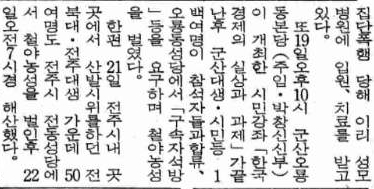 집단폭행 당해 이리 성모
병원에 입원, 치료를 받고
있다.
또 19일오후10시 군산오룡
동본당(주임·박창신신부)
이 개최한 시민강좌 「한국
경제의 실상과 과제」가끝
난후 군산대생·시민등 1
백여명이 참석자들과합류,
오룡동성당에서 「구속자석방
」등을 요구하며 철야농성
을 벌였다.
한편 21일 전주시내 곳
곳에서 산발시위를하던 전
북대·전주대생 가운데 50
여명도 전주시 전동성당에
서 철야농성을 벌인후 22
일오전7시경 해산했다.